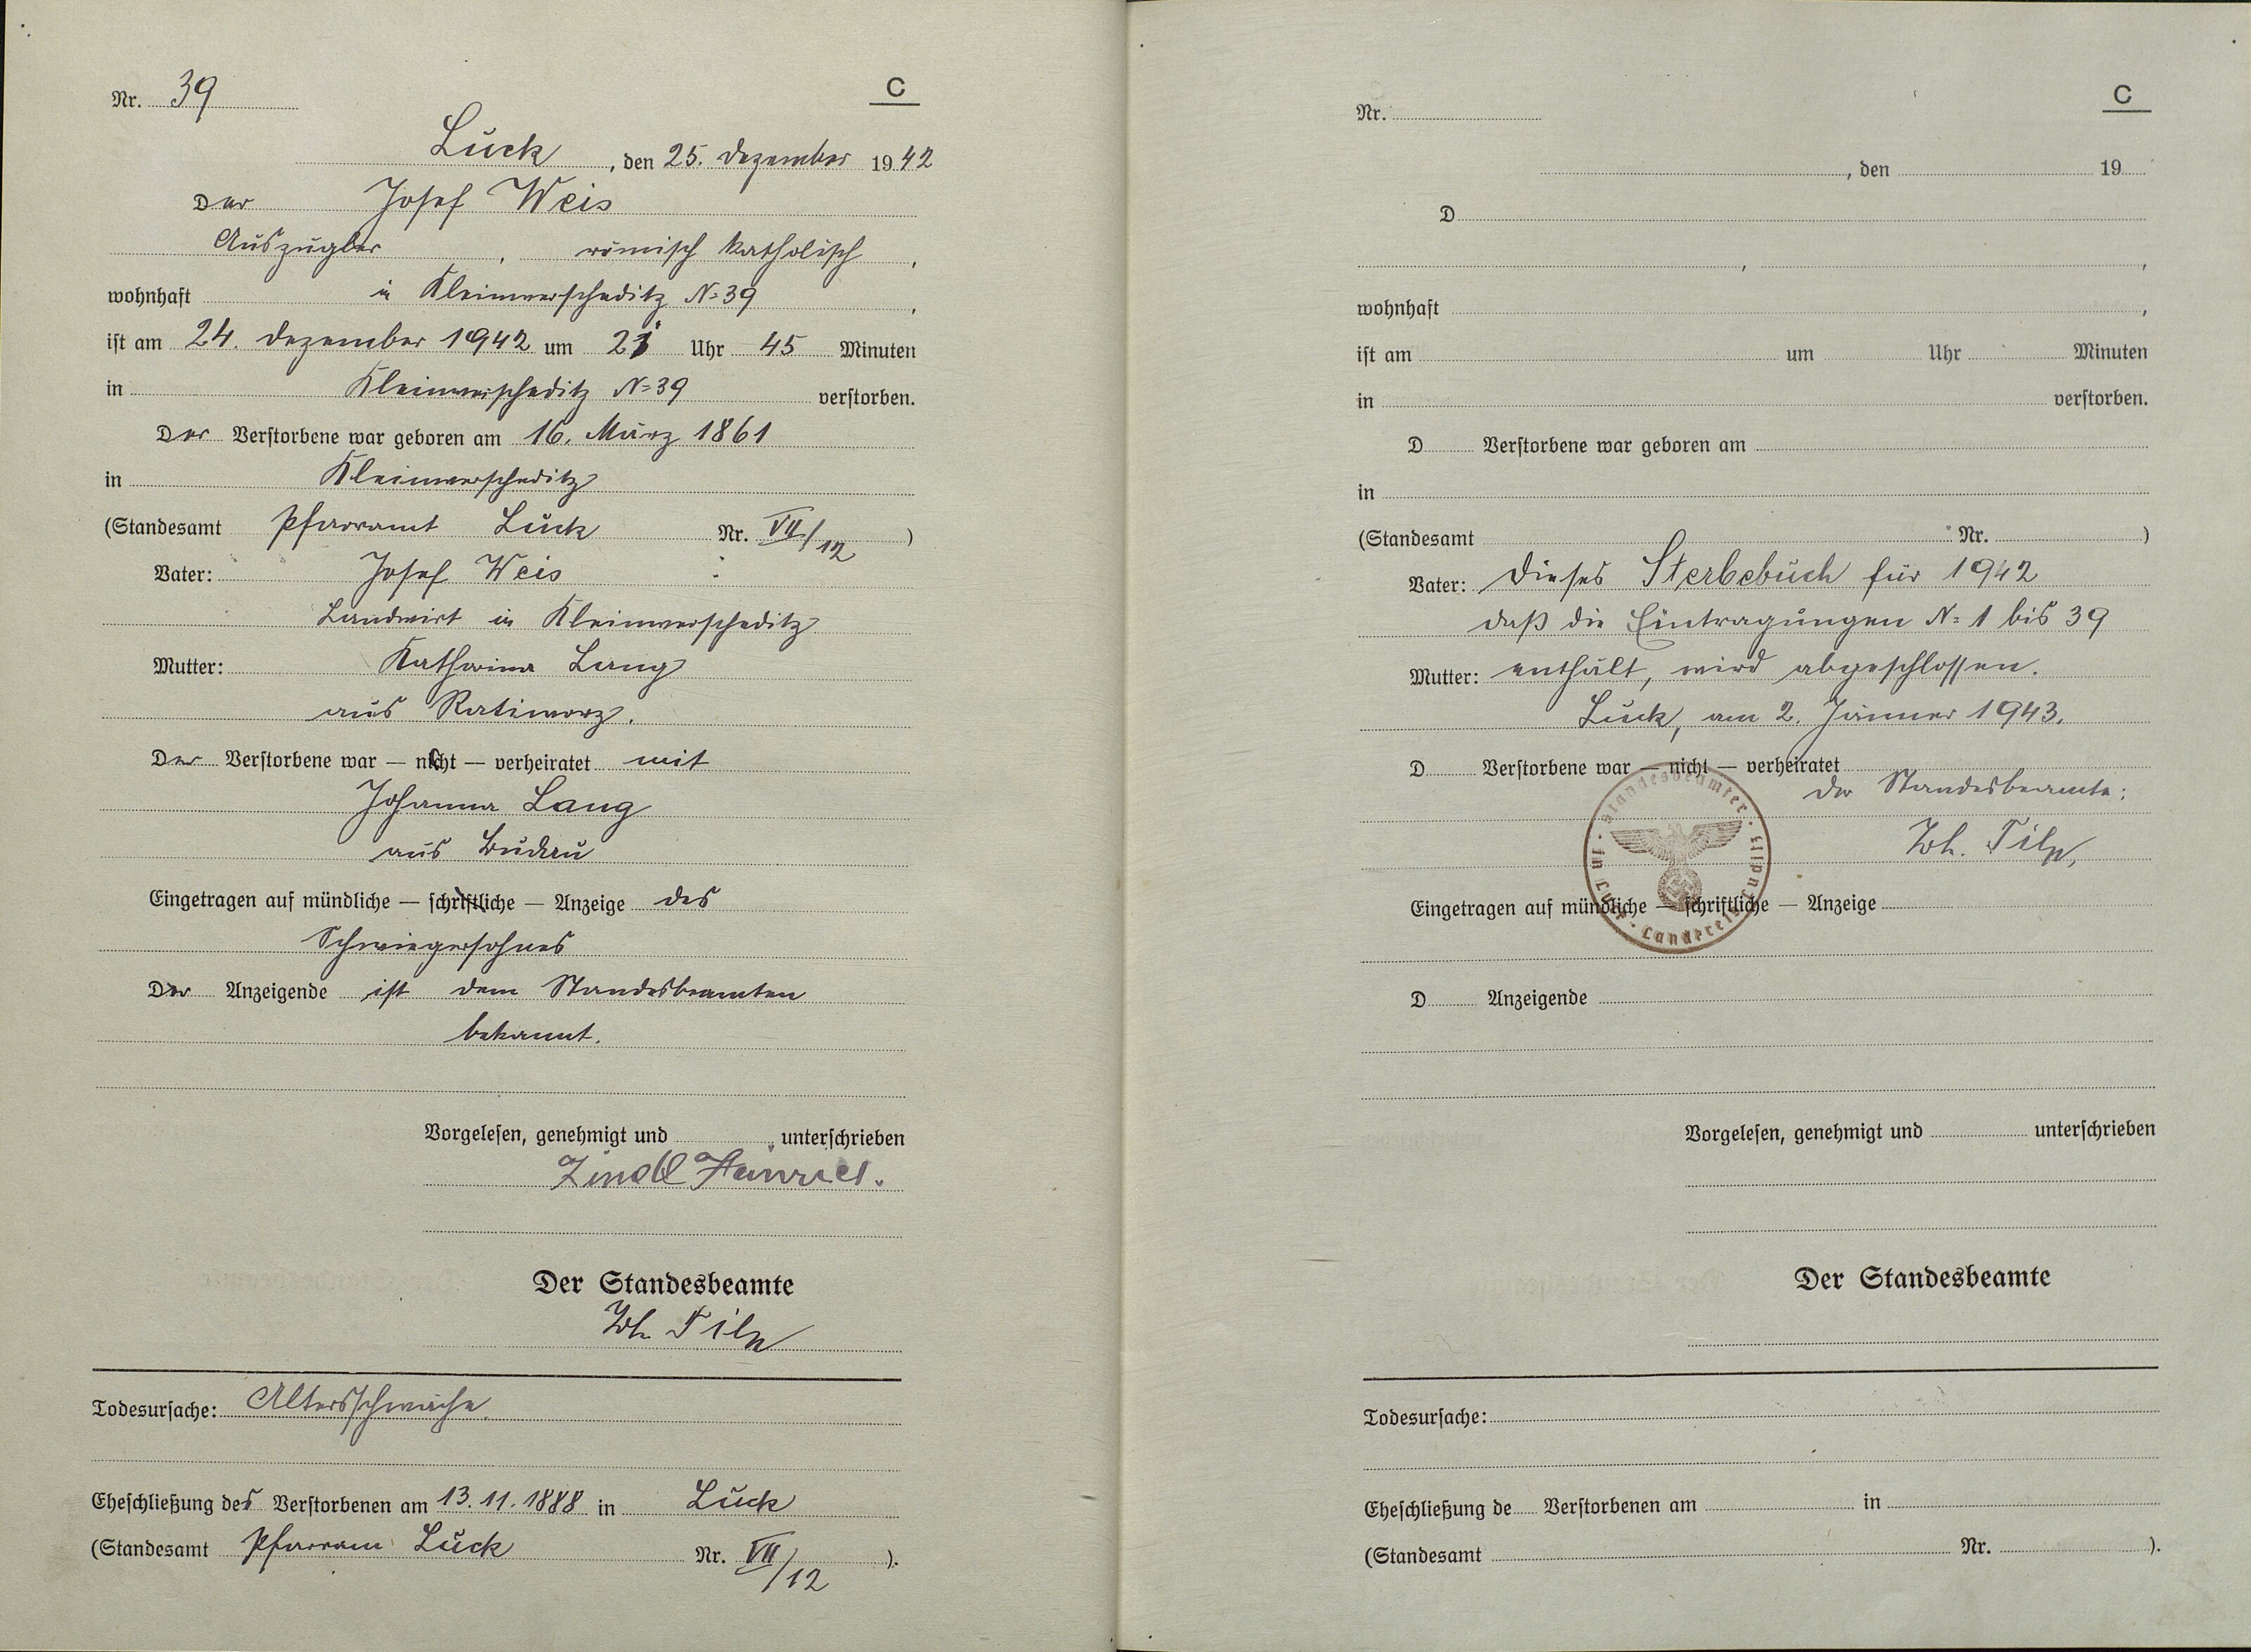 Nr. 39
C
Luck, den 25. Dezember 1942
Der Josef Weis
Auszügler, römisch katholisch,
wohnhaft in Kleinwerscheditz N= 39,
ist am 24. Dezember 1942 um 21 Uhr 45 Minuten
in Kleinwerscheditz N= 39 verstorben.
Der Verstorbene war geboren am 16. März 1861
in Kleinwerscheditz
(Standesamt Pfarramt Luck Nr. VII/12)
Vater: Josef Weis
Landwirt in Kleinwerscheditz
Mutter: Katharina Lang
aus Ratiworz.
Der Verstorbene war — nicht — verheiratet mit
Johanna Lang
aus Budau
Eingetragen auf mündliche — schriftliche — Anzeige des
Schwiegersohnes
Der Anzeigende ist dem Standesbeamten
bekannt.
Vorgelesen, genehmigt und unterschrieben
Heinrich.
Der Standesbeamte
Todesursache: Altersschwäche
Eheschließung des Verstorbenen am 13.11.1888 in Luck
(Standesamt Pfarram Luck Nr. VII/12).
Nr.
C
, den 19
D
, ,
wohnhaft ,
ist am um Uhr Minuten
in verstorben.
D Verstorbene war geboren am
in
(Standesamt Nr. )
Vater: Dieses Sterbebuch für 1942
daß die Eintragungen N= 1 bis 39
Mutter: enthält, wird abgeschlossen.
Luck, am 2. Jänner 1943.
D Verstorbene war — nicht — verheiratet
Der Standesbeamte:
Standesbeamter in Luck
Eingetragen auf mündliche — schriftliche — Anzeige
D Anzeigende
Vorgelesen, genehmigt und unterschrieben
Der Standesbeamte
Todesursache:
Eheschließung de Verstorbenen am in
(Standesamt Nr. ).